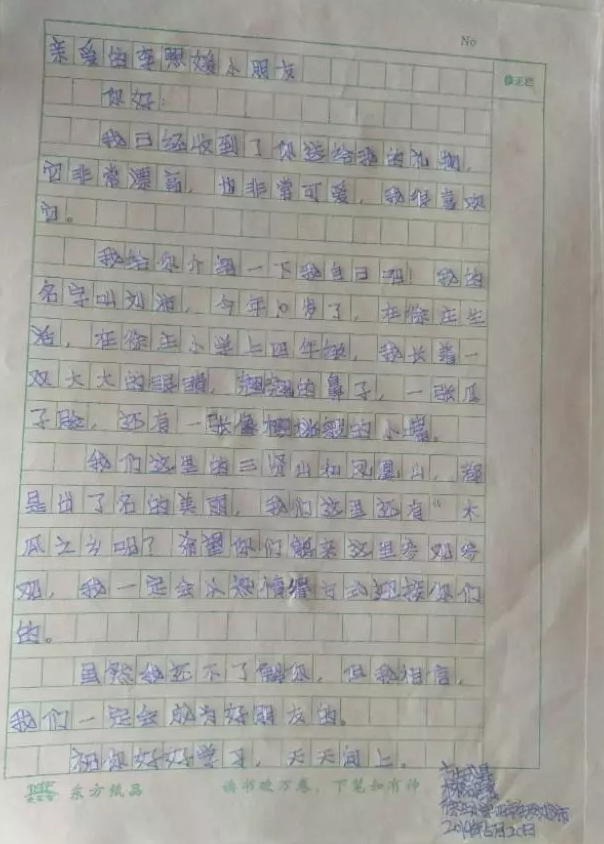 No
亲爱的李熙媛小朋友
你好：
我已经收到了你送给我的礼物，
它非常漂亮，也非常可爱，我很喜欢
它。
我给你介绍一下我自己吧！我的
名字叫刘湘，今年10岁了，在徐庄生
活，在徐庄小学上四年级，我长着一
双大大的眼睛，翘翘的鼻子，一张瓜
子脸，还有一张像樱桃般的小嘴。
我们这里的三贤山和凤凰山，都
是出了名的美丽，我们这里还有“木
瓜之乡呢？希望你们能来这里参观参
观，我一定会以热情得方式迎接你们
的。
虽然我还不了解你，但我相信，
我们一定会成为好朋友的。
祝你好好学习，天天向上。
东方纸品 读书破万卷，下笔如有神